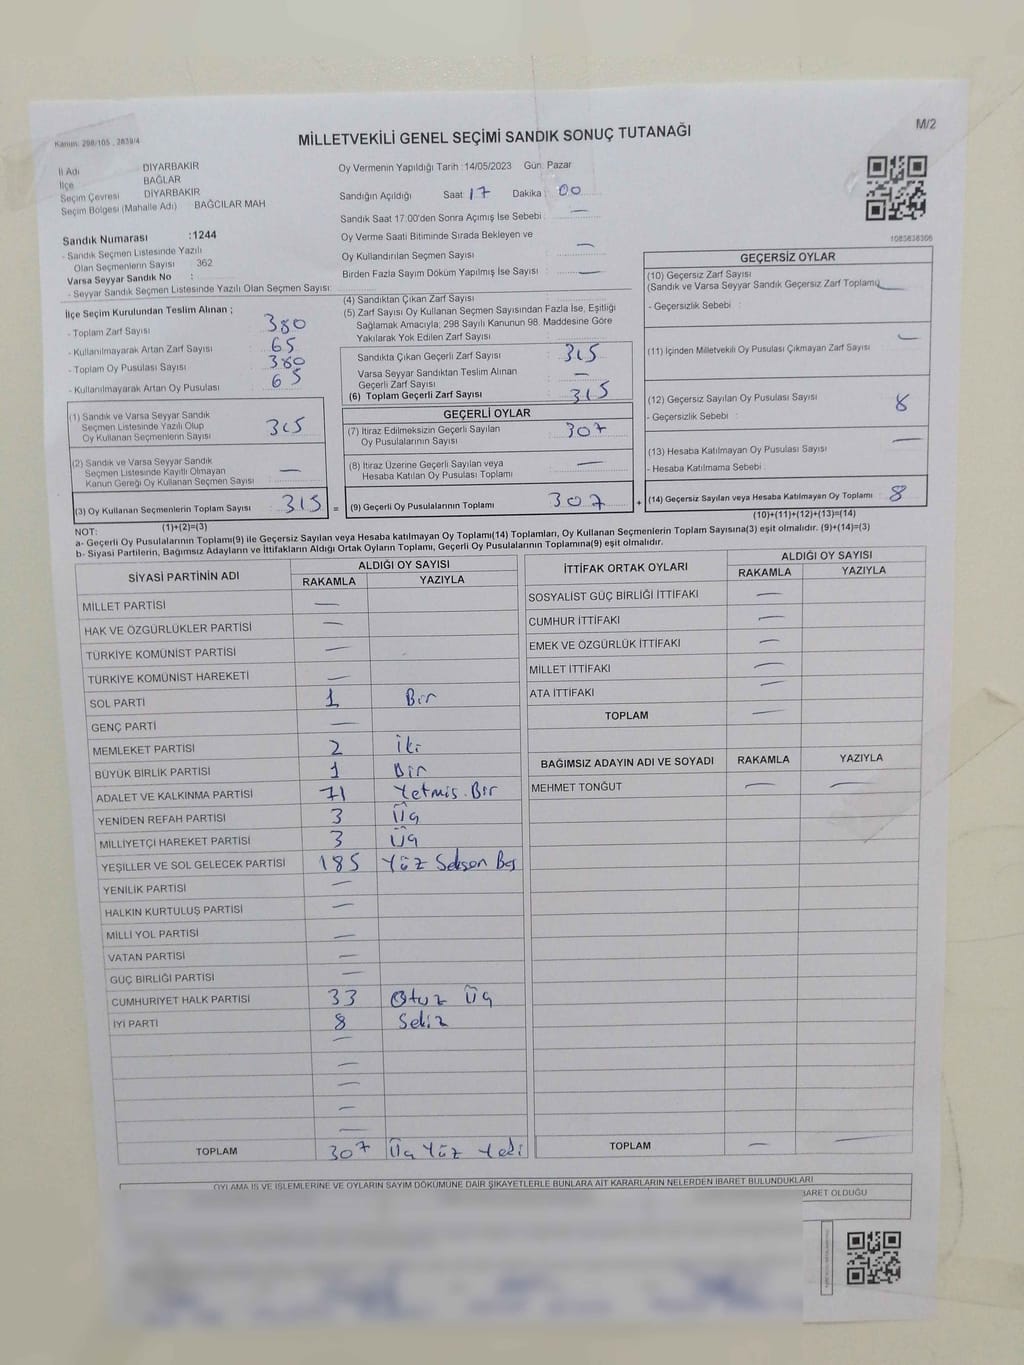 Kanun: 298/105 , 2839/4
MİLLETVEKİLİ GENEL SEÇİMİ SANDIK SONUÇ TUTANAĞI
M/2
İl Adı DİYARBAKIR
İlçe BAĞLAR
Seçim Çevresi DİYARBAKIR
Seçim Bölgesi (Mahalle Adı) BAĞCILAR MAH
Oy Vermenin Yapıldığı Tarih :14/05/2023 Gün: Pazar
Sandığın Açıldığı Saat : 17 Dakika : 00
Sandık Saat 17:00'den Sonra Açımış İse Sebebi : —
Oy Verme Saati Bitiminde Sırada Bekleyen ve
Oy Kullandırılan Seçmen Sayısı : —
Birden Fazla Sayım Döküm Yapılmış İse Sayısı : —
1083638306
Sandık Numarası :1244
- Sandık Seçmen Listesinde Yazılı
Olan Seçmenlerin Sayısı : 362
Varsa Seyyar Sandık No :
- Seyyar Sandık Seçmen Listesinde Yazılı Olan Seçmen Sayısı:
İlçe Seçim Kurulundan Teslim Alınan ;
- Toplam Zarf Sayısı : 380
- Kullanılmayarak Artan Zarf Sayısı : 65
- Toplam Oy Pusulası Sayısı : 380
- Kullanılmayarak Artan Oy Pusulası : 65
(1) Sandık ve Varsa Seyyar Sandık
Seçmen Listesinde Yazılı Olup
Oy Kullanan Seçmenlerin Sayısı : 315
(2) Sandık ve Varsa Seyyar Sandık
Seçmen Listesinde Kayıtlı Olmayan
Kanun Gereği Oy Kullanan Seçmen Sayısı : —
(3) Oy Kullanan Seçmenlerin Toplam Sayısı : 315 =
(1)+(2)=(3)
(4) Sandıktan Çıkan Zarf Sayısı :
(5) Zarf Sayısı Oy Kullanan Seçmen Sayısından Fazla İse, Eşitliği
Sağlamak Amacıyla; 298 Sayılı Kanunun 98. Maddesine Göre
Yakılarak Yok Edilen Zarf Sayısı :
Sandıkta Çıkan Geçerli Zarf Sayısı : 315
Varsa Seyyar Sandıktan Teslim Alınan
Geçerli Zarf Sayısı : —
(6) Toplam Geçerli Zarf Sayısı : 315
GEÇERLİ OYLAR
(7) İtiraz Edilmeksizin Geçerli Sayılan
Oy Pusulalarının Sayısı : 307
(8) İtiraz Üzerine Geçerli Sayılan veya
Hesaba Katılan Oy Pusulası Toplamı : —
(9) Geçerli Oy Pusulalarının Toplamı : 307 +
GEÇERSİZ OYLAR
(10) Geçersiz Zarf Sayısı
(Sandık ve Varsa Seyyar Sandık Geçersiz Zarf Toplamı) —
- Geçersizlik Sebebi :
(11) İçinden Milletvekili Oy Pusulası Çıkmayan Zarf Sayısı : —
(12) Geçersiz Sayılan Oy Pusulası Sayısı : 8
- Geçersizlik Sebebi :
(13) Hesaba Katılmayan Oy Pusulası Sayısı : —
- Hesaba Katılmama Sebebi :
(14) Geçersiz Sayılan veya Hesaba Katılmayan Oy Toplamı : 8
(10)+(11)+(12)+(13)=(14)
NOT:
a- Geçerli Oy Pusulalarının Toplamı(9) ile Geçersiz Sayılan veya Hesaba katılmayan Oy Toplamı(14) Toplamları, Oy Kullanan Seçmenlerin Toplam Sayısına(3) eşit olmalıdır. (9)+(14)=(3)
b- Siyasi Partilerin, Bağımsız Adayların ve İttifakların Aldığı Ortak Oyların Toplamı, Geçerli Oy Pusulalarının Toplamına(9) eşit olmalıdır.
SİYASİ PARTİNİN ADI ALDIĞI OY SAYISI
RAKAMLA YAZIYLA
MİLLET PARTİSİ —
HAK VE ÖZGÜRLÜKLER PARTİSİ —
TÜRKİYE KOMÜNİST PARTİSİ —
TÜRKİYE KOMÜNİST HAREKETİ —
SOL PARTİ 1 Bir
GENÇ PARTİ —
MEMLEKET PARTİSİ 2 İki
BÜYÜK BİRLİK PARTİSİ 1 Bir
ADALET VE KALKINMA PARTİSİ 71 Yetmiş Bir
YENİDEN REFAH PARTİSİ 3 Üç
MİLLİYETÇİ HAREKET PARTİSİ 3 Üç
YEŞİLLER VE SOL GELECEK PARTİSİ 185 Yüz Seksen Beş
YENİLİK PARTİSİ —
HALKIN KURTULUŞ PARTİSİ —
MİLLİ YOL PARTİSİ —
VATAN PARTİSİ —
GÜÇ BİRLİĞİ PARTİSİ —
CUMHURİYET HALK PARTİSİ 33 Otuz Üç
İYİ PARTİ 8 Sekiz
—
—
—
—
—
TOPLAM 307 Üç Yüz Yedi
İTTİFAK ORTAK OYLARI ALDIĞI OY SAYISI
RAKAMLA YAZIYLA
SOSYALİST GÜÇ BİRLİĞİ İTTİFAKI —
CUMHUR İTTİFAKI —
EMEK VE ÖZGÜRLÜK İTTİFAKI —
MİLLET İTTİFAKI —
ATA İTTİFAKI —
TOPLAM —
BAĞIMSIZ ADAYIN ADI VE SOYADI RAKAMLA YAZIYLA
MEHMET TONĞUT — —
TOPLAM — —
OYLAMA İŞ VE İŞLEMLERİNE VE OYLARIN SAYIM DÖKÜMÜNE DAİR ŞİKAYETLERLE BUNLARA AİT KARARLARIN NELERDEN İBARET BULUNDUKLARI
BARET OLDUĞU